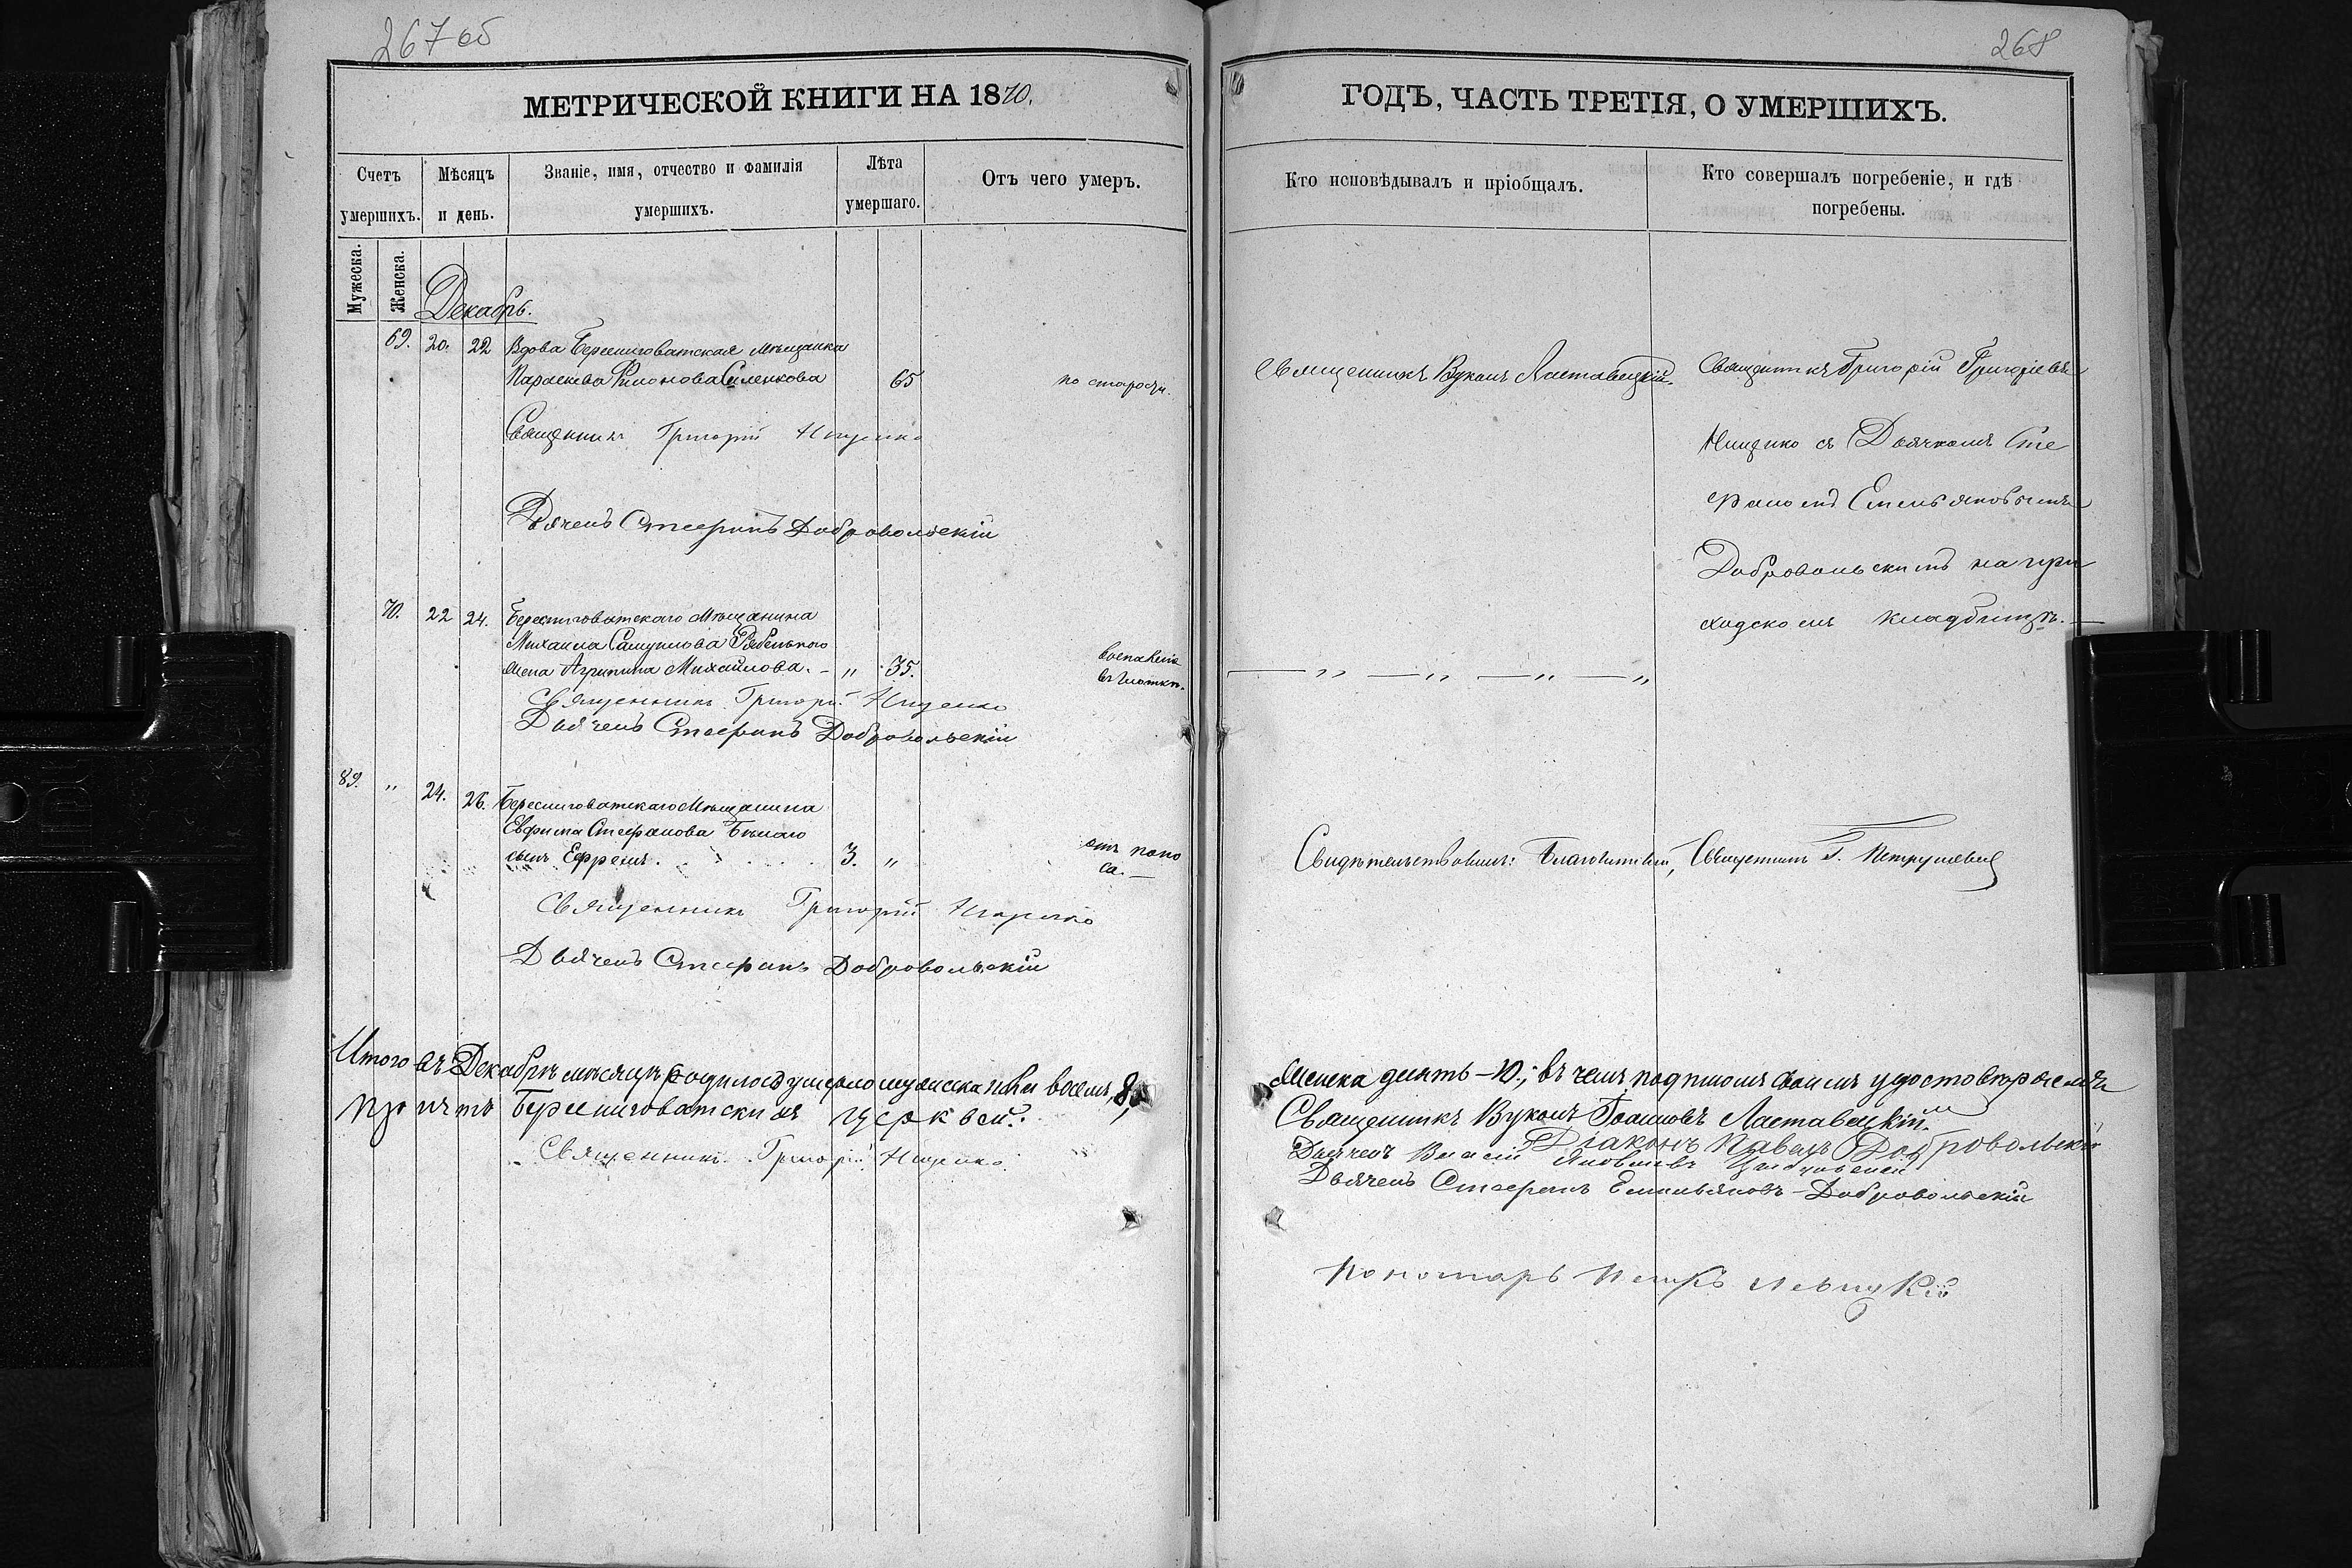 267 об
МЕТРИЧЕСКОЙ КНИГИ НА 1870.
Счетъ умершихъ.
Мѣсяцъ и день.
Званіе, имя, отчество и фамилія умершихъ.
Лѣта умершаго.
Отъ чего умеръ.
Мужеска.
Женска.
Декабрь.
69. 20. 22 Вдова Берестоватская мѣщанка
Параскева Филонова Силенкова 65 по старости.
Священникъ Григорій Нищенко
Дьячекъ Стефанъ Добровольскій
70. 22 24. Берестоватскаго Мѣщанина
Михаила Самуилова
жена Агрипина Михайлова. - " 35. воспаленія
въ глоткѣ.
Священникъ Григорій Нищенко
Дьячекъ Стефанъ Добровольскій
89. " 24. 26. Берестоватскаго Мѣщанина
Евфима Стефанова Бѣлаго
сынъ Ефремъ. 3. " отъ поно
са. —
Священникъ Григорій Нищенко
Дьячекъ Стефанъ Добровольскій
Итого въ Декабрѣ мѣсяцѣ умерло мужеска пола восемь, 8,
причтъ церквей:
Священникъ Григорій Нищенко
268
ГОДЪ, ЧАСТЬ ТРЕТІЯ, О УМЕРШИХЪ.
Кто исповѣдывалъ и пріобщалъ.
Кто совершалъ погребеніе, и гдѣ погребены.
Священникъ Вуколъ Ластавецкій.
Священникъ Григорій Григоріевъ
Нищенко съ Дьячкомъ Сте
фаномъ Емельяновымъ
Добровольскимъ на при
ходскомъ кладбищѣ. —
— " — " — " — "
Свидѣтельствовалъ: Благочинный, Священникъ Г. Петрушевскій
женска десять - 10.; въ чемъ подписомъ своимъ удостовѣряемъ
Священникъ Вуколъ Іоанновъ Ластавецкій
Діаконъ Павелъ Добровольскій
Дьячекъ Василій Яковлевъ
Дьячекъ Стефанъ Емельяновъ Добровольскій
Пономарь Петръ Левицкій